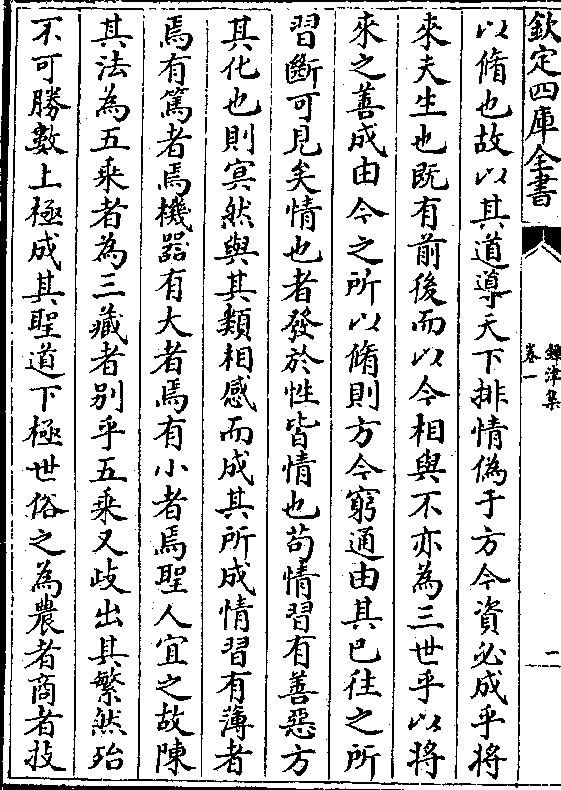 欽定四庫全書
鐔津集
卷一
一
以脩也故以其道導天下排情偽于方今資必成乎將
來夫生也既有前後而以今相與不亦為三世乎以將
來之善成由今之所以脩則方今窮通由其已往之所
習斷可見矣情也者發於性皆情也苟情習有善惡方
其化也則㝠然與其類相感而成其所成情習有薄者
焉有篤者焉機器有大者焉有小者焉聖人宜之故陳
其法為五乘者為三藏者别乎五乘又岐出其繁然殆
不可勝數上極成其聖道下極世俗之為農者商者技